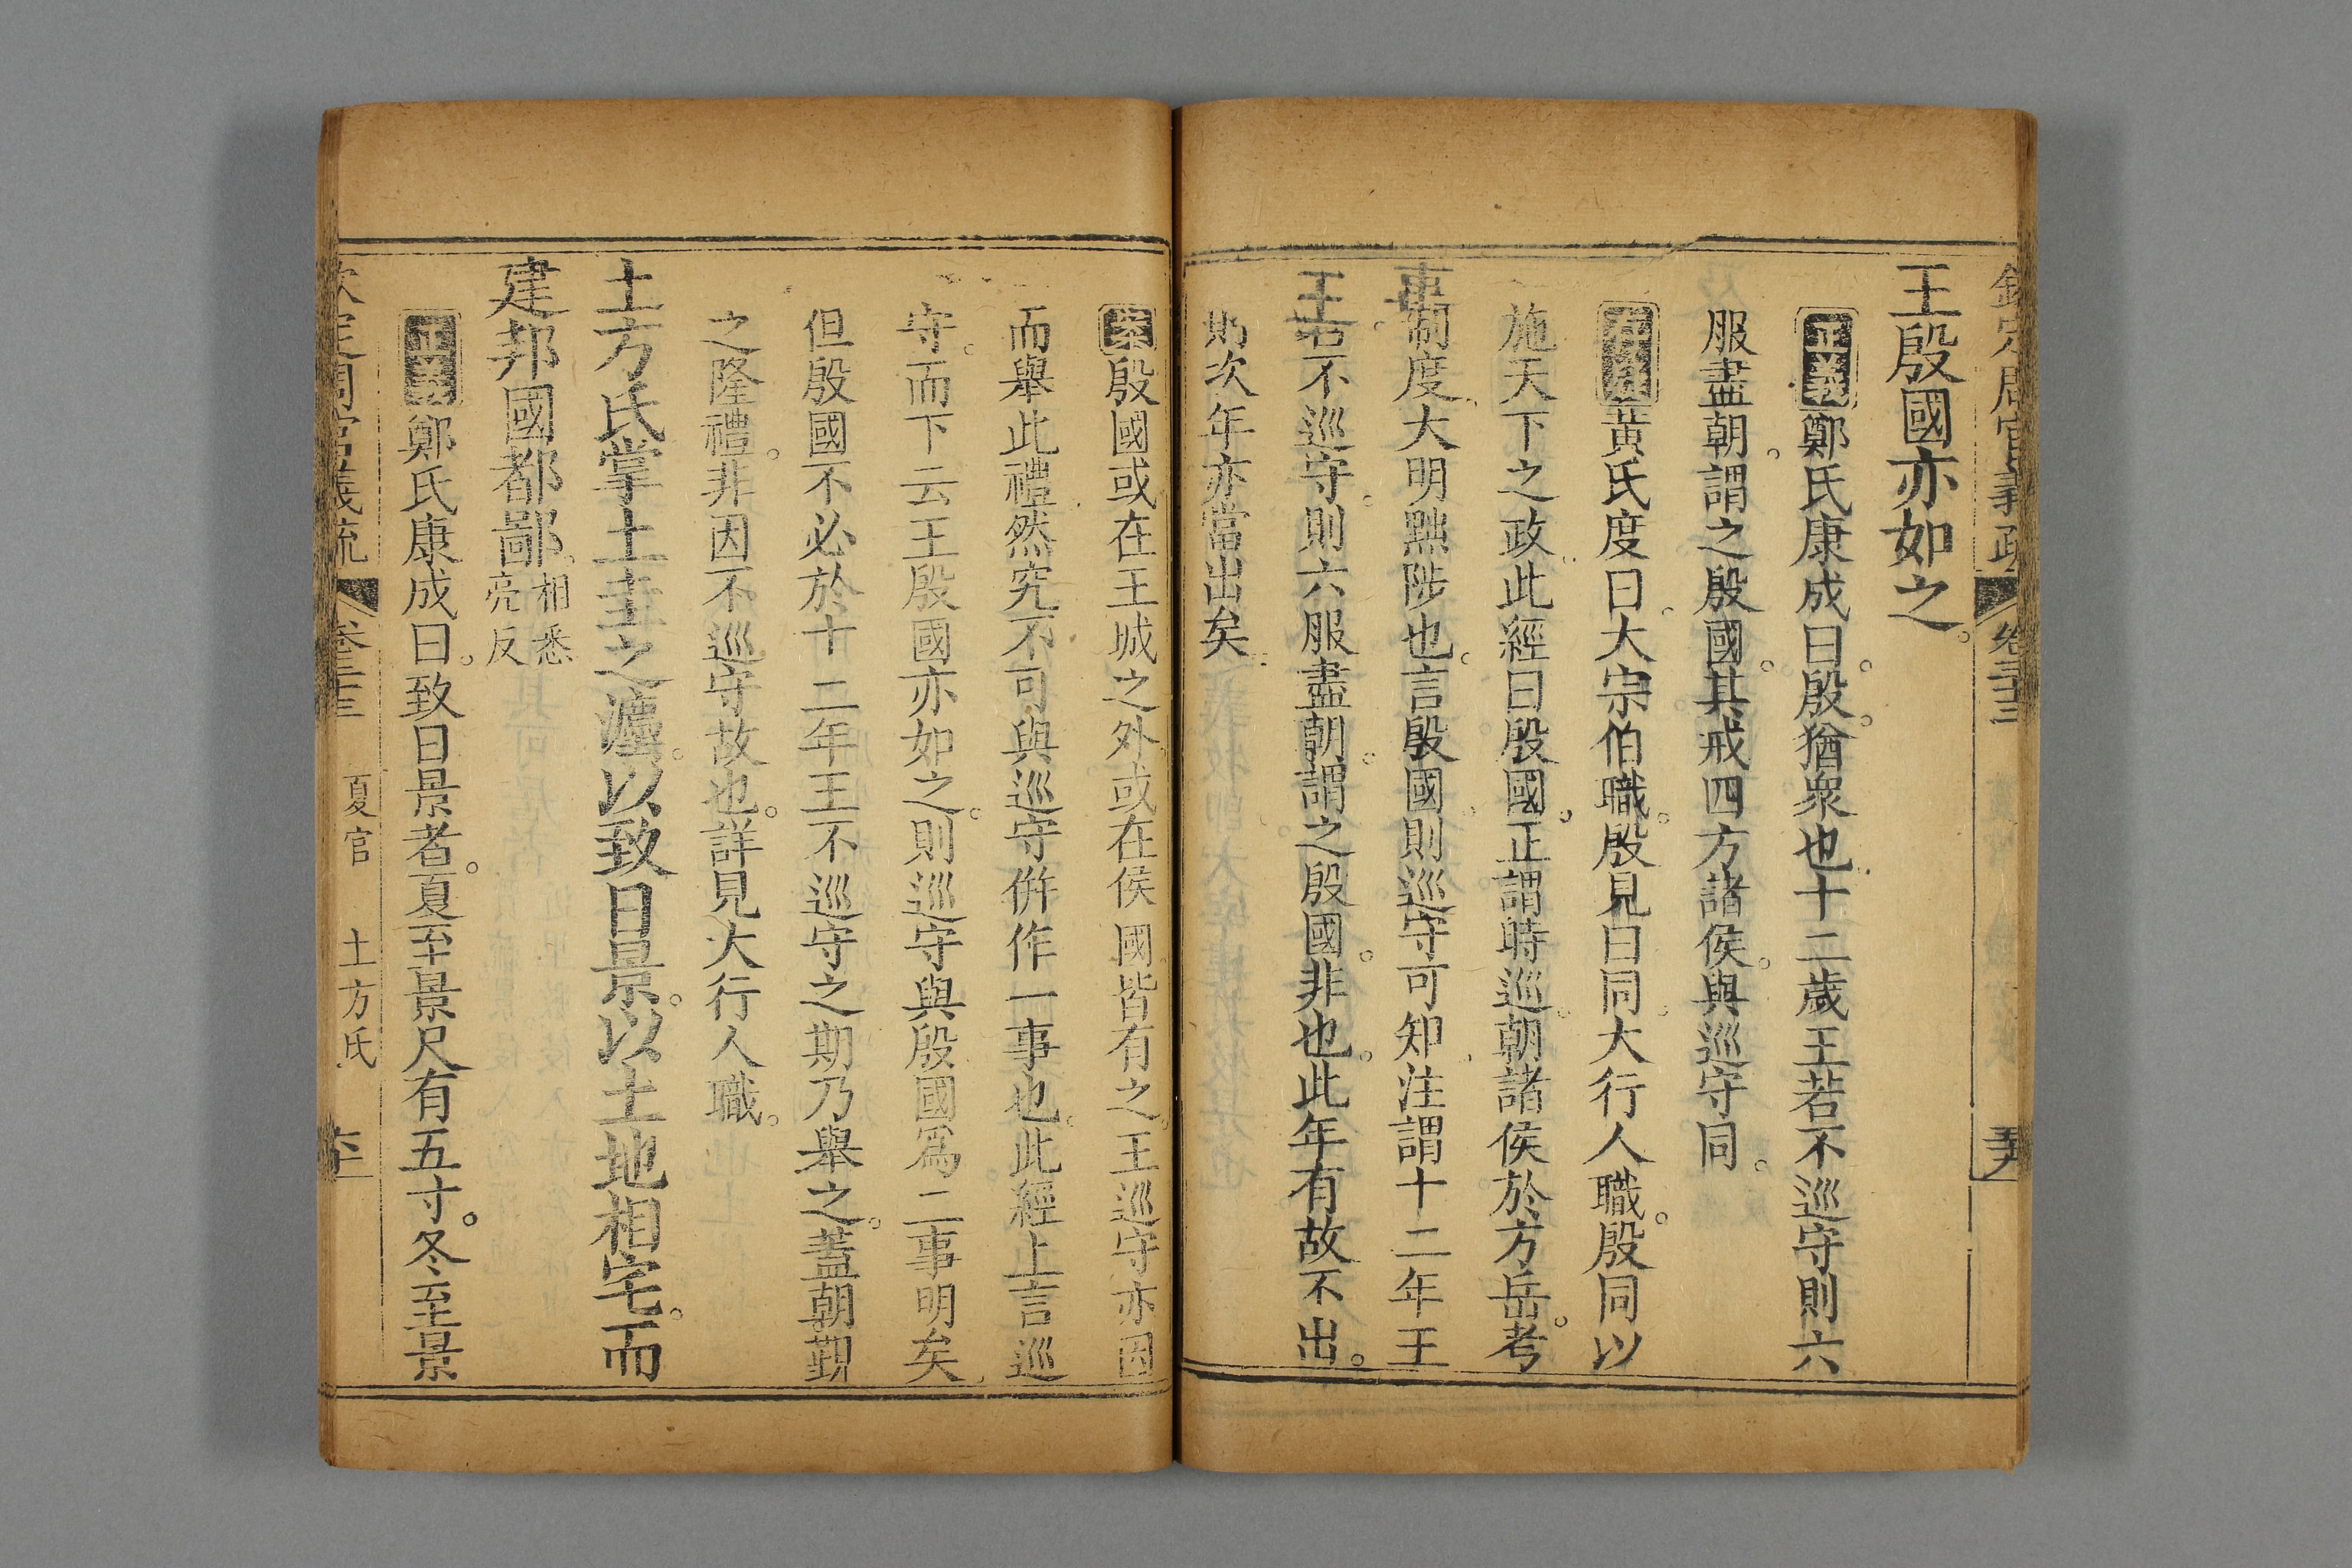 欽定周官義疏 卷三十三
王殷國亦如之。
正義鄭氏康成曰。殷。猶衆也十二歲王若不巡守則六
服盡朝。謂之殷國。其戒四方諸侯。與巡守同。
黃氏度曰。大宗伯職。殷見曰同。大行人職。殷同以
施天下之政。此經曰殷國。正謂時巡。朝諸侯於方岳。考
制度。大明黜陟也。言殷國則巡守可知注謂十二年王
若不巡守。則六服盡朝。謂之殷國。非也。此年有故不出。
則次年亦當出矣。
案殷國或在王城之外。或在侯國皆有之。王巡守亦因
而舉此禮。然究不可與巡守倂作一事也。此經上言巡
守。而下云王殷國亦如之。則巡守與殷國爲二事明矣。
但殷國不必於十二年王不巡守之期乃舉之。蓋朝覲
之隆禮。非因不巡守故也。詳見大行人職。
土方氏掌土圭之灋。以致日景。以土地相宅。而
建邦國都鄙。相悉
亮反
正義鄭氏康成曰。致日景者。夏至景尺有五寸。冬至景
欽定周官義疏 卷三十三 夏官 土方氏